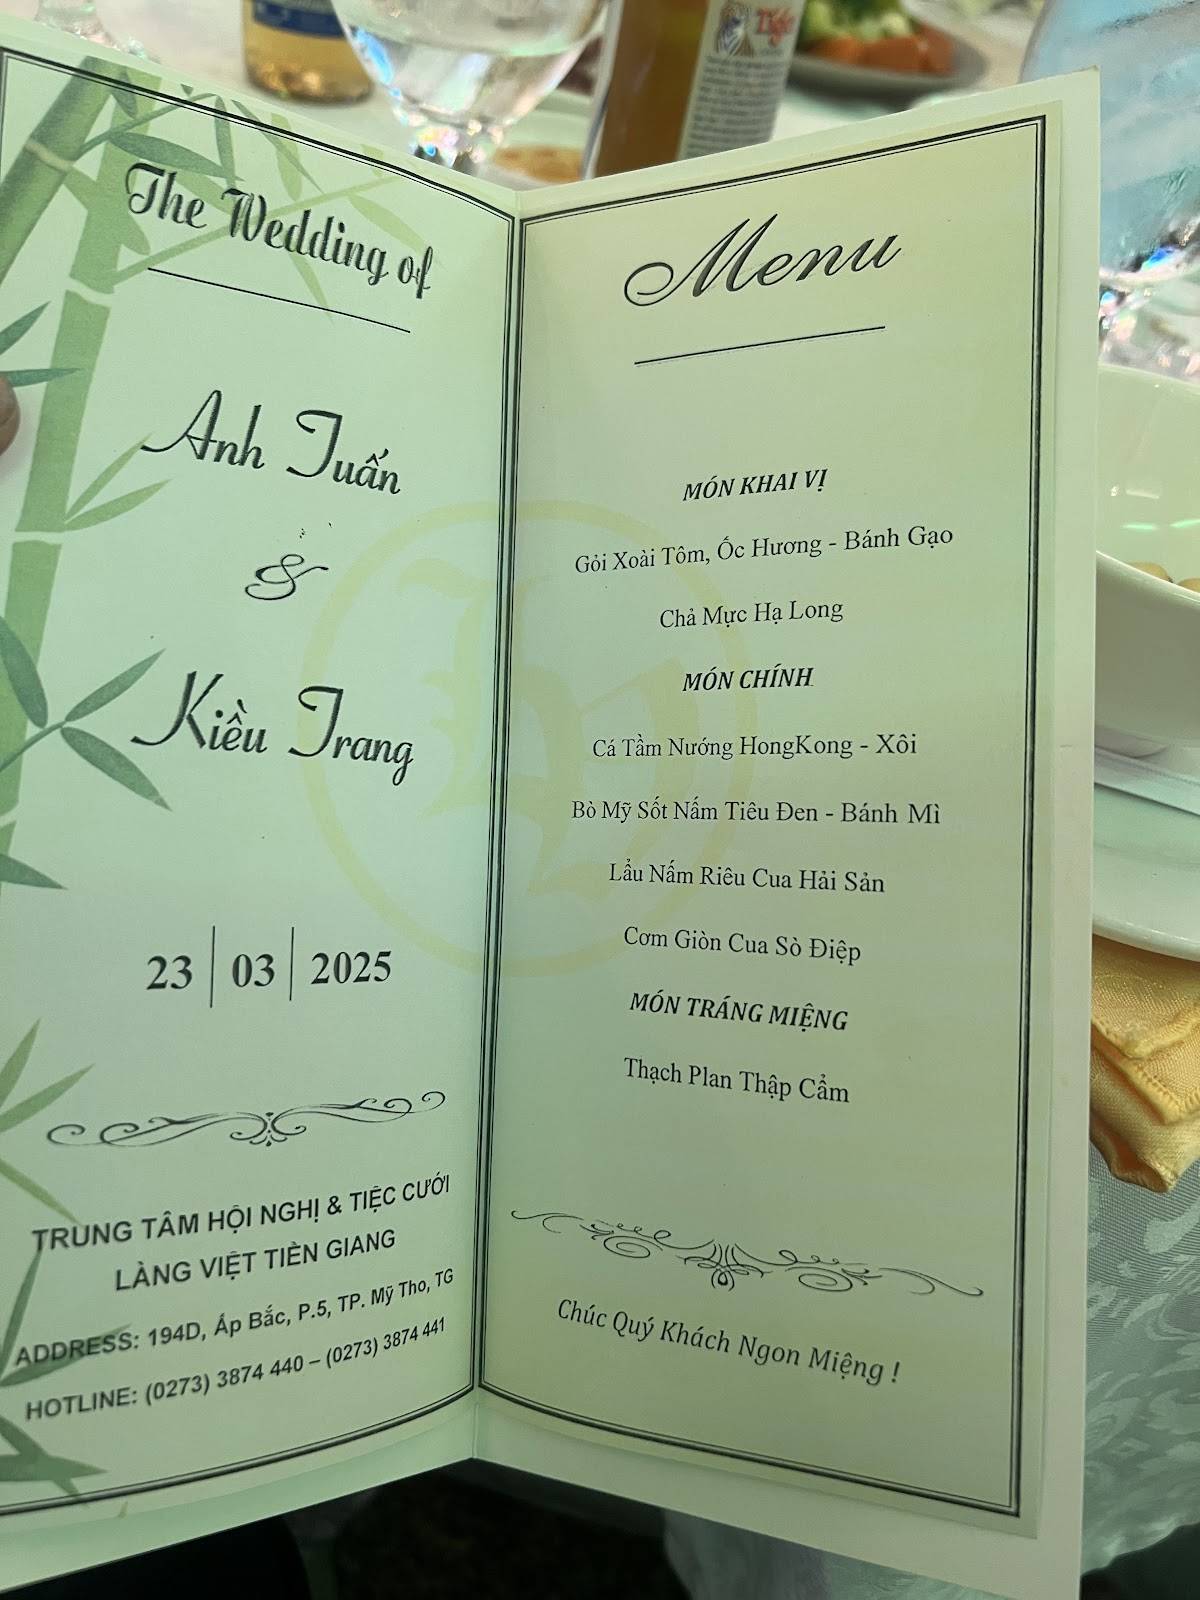 The Wedding of
Anh Tuấn
&
Kiều Trang
23 | 03 | 2025
TRUNG TÂM HỘI NGHỊ & TIỆC CƯỚI
LÀNG VIỆT TIỀN GIANG
ADDRESS: 194D, Ấp Bắc, P.5, TP. Mỹ Tho, TG
HOTLINE: (0273) 3874 440 – (0273) 3874 441
Menu
MÓN KHAI VỊ
Gỏi Xoài Tôm, Ốc Hương - Bánh Gạo
Chả Mực Hạ Long
MÓN CHÍNH
Cá Tầm Nướng HongKong - Xôi
Bò Mỹ Sốt Nấm Tiêu Đen - Bánh Mì
Lẩu Nấm Riêu Cua Hải Sản
Cơm Giòn Cua Sò Điệp
MÓN TRÁNG MIỆNG
Thạch Plan Thập Cẩm
Chúc Quý Khách Ngon Miệng !